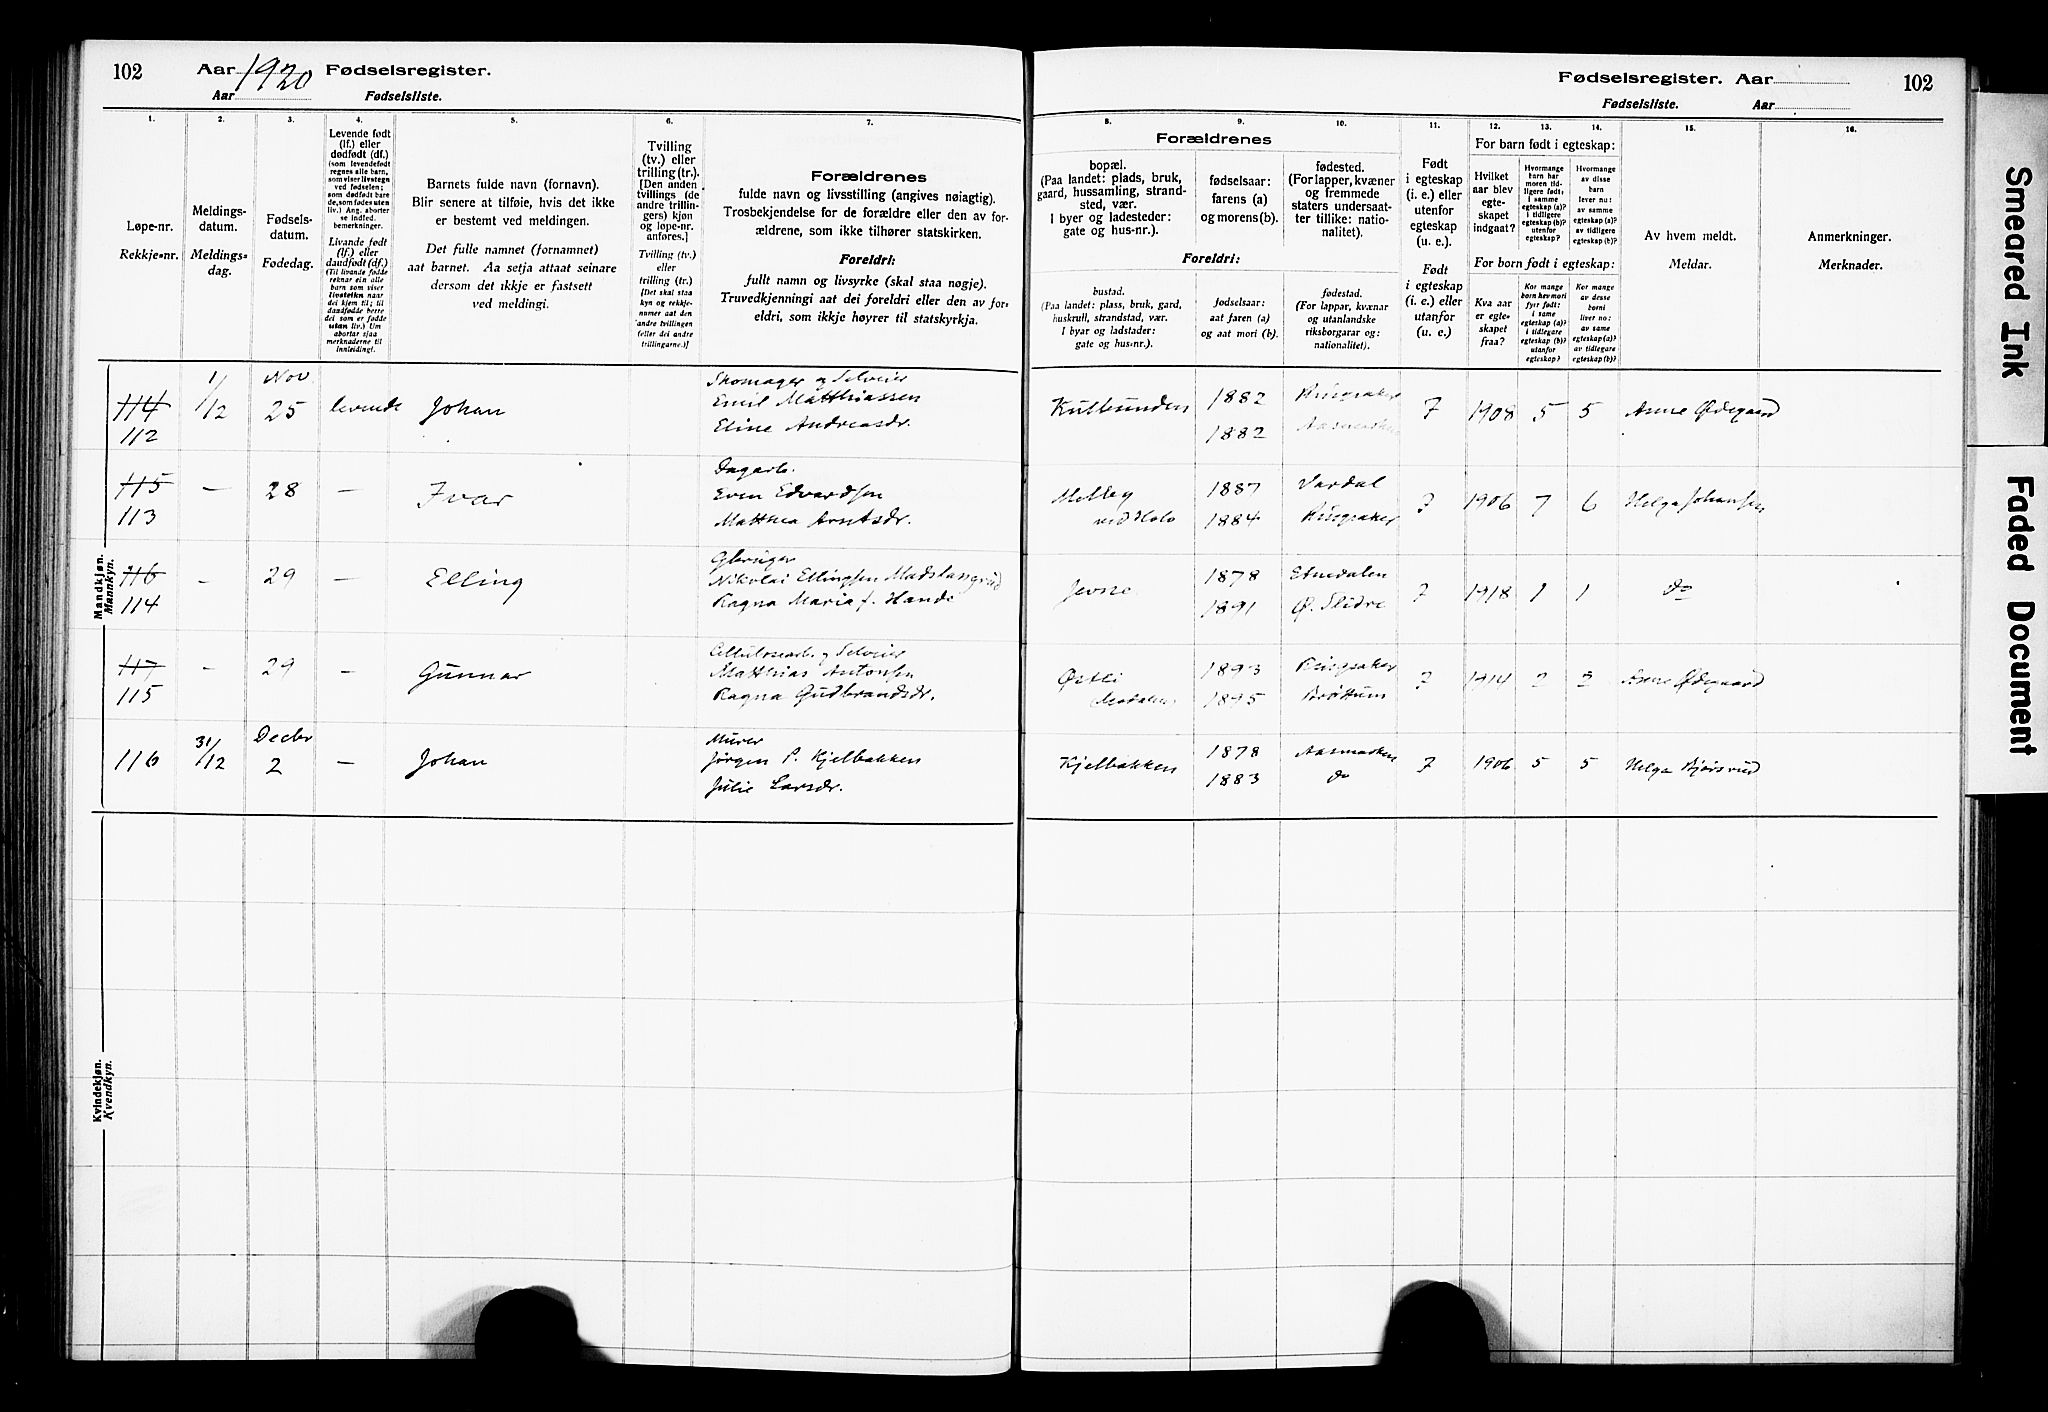 102 Aar 1920 Fødselsregister.
Aar Fødselsliste.
Fødselsregister. Aar 102
Fødselsliste. Aar
1. 2. 3. 4. 5. 6. 7. 8. 9. 10. 11. 12. 13. 14. 15. 16.
Løpe-nr.
Rekkje-nr.
Meldings-
datum.
Meldings-
dag.
Fødsels-
datum.
Fødedag.
Levende født
(lf.) eller
dødfødt (df.)
(som levendefødt
regnes alle barn,
som viser livstegn
ved fødselen;
som dødfødt bare
de, som fødes uten
liv.) Ang. aborter
se indled.
bemerkninger.
Livande født
(lf.) eller
daudfødt (df.)
(Til livande fødde
reknar ein alle
born som viser
livsteikn naar
dei kjem til; til
daudfødde berre
dei som er fødde
utan liv.) Um
abortar sjaa
merknaderne til
innleiding).
Barnets fulde navn (fornavn).
Blir senere at tilføie, hvis det ikke
er bestemt ved meldingen.
Det fulle namnet (fornamnet)
aat barnet. Aa setja attaat seinare
dersom det ikkje er fastsett
ved meldingi.
Tvilling
(tv.) eller
trilling (tr.).
[Den anden
tvillings (de
andre trillin-
gers) kjøn
og løpe-nr.
anføres.]
Tvilling (tv.)
eller
trilling (tr.)
[Det skal staa
kyn og rekkje-
numer aat den
andre tvillingen
(eller dei andre
trillingarne.)]
Forældrenes
fulde navn og livsstilling (angives nøiagtig).
Trosbekjendelse for de forældre eller den av for-
ældrene, som ikke tilhører statskirken.
Foreldri:
fullt namn og livsyrke (skal staa nøgje).
Truvedkjenningi aat dei foreldri eller den av for-
eldri, som ikkje høyrer til statskyrkja.
Forældrenes
bopæl.
(Paa landet: plads, bruk,
gaard, hussamling, strand-
sted, vær.
I byer og ladesteder:
gate og hus-nr.).
fødselsaar:
farens (a)
og morens (b).
fødested.
(For lapper, kvæner
og fremmede
staters undersaat-
ter tillike: natio-
nalitet).
Foreldri:
bustad.
(Paa landet: plass, bruk, gard,
huskrull, strandstad, vær.
I byar og ladstader:
gate og hus-nr.).
fødselsaar:
aat faren (a)
og aat mori (b).
fødestad.
(For lappar, kvænar
og utanlandske
riksborgarar og:
nationalitet).
Født
i egteskap
(i. e.) eller
utenfor
egteskap
(u. e.).
Født
i egteskap
(i. e.) eller
utanfor
(u. e.)
For barn født i egteskap:
Hvilket
aar blev
egte-
skapet
indgaat?
Hvormange
barn har
moren tid-
ligere født;
i samme
egteskap (a)?
i tidligere
egteskap (b)?
utenfor
egteskap?
Hvormange
av disse
barn
lever nu:
av samme
egteskap (a)?
av tidligere
egteskap (b)?
For born født i egteskap:
Kva aar
er egte-
skapet
fraa?
Kor mange
born hev mori
fyrr født:
i same
egteskap (a)?
i tidlegare
egteskap (b)?
utanfor
egteskap?
Kor mange
av desse
borni
liver no:
av same
egteskap (a)?
av tidlegare
egteskap (b)?
Av hvem meldt.
Meldar.
Anmerkninger.
Merknader.
Mandkjøn.
Mannkyn.
114 112 1/12 Nov 25 levende Johan
Skomager og Selveier
Emil Matthiassen
Eline Andreasdr.
1882 Ringsaker
1882
7 1908 5 5 Anne Ødegaard
115 113 — 28 — Ivar
Dagarb.
Even Edvardsen
Matthea Arntsdr.
Melby
1887 Vardal
1884 Ringsaker
7 1906 7 6 Helga Johansen
116 114 - 29 — Elling
Nikolai Ellingsen Madslangrud
Ragna Maria f. Hande
Jevne
1878 Etnedalen
1891 Ø. Slidre
7 1918 1 1 do
117 115 - 29 — Gunnar
Cellulosearb. og Selveier
Matthias Antonsen
Ragna Gudbrandsdr.
Østli
1893 Ringsaker
1895 Brøttum
7 1914 2 2 Anne Ødegaard
116 31/12 Decbr 2 — Johan
Murer
Jørgen P. Kjelbakken
Julie Larsdr.
Kjelbakken
1878 Aasmarken
1883 do
7 1906 5 5 Helga Bjørsrud
Kvindekjøn.
Kvendkyn.
Smeared Ink
Faded Document